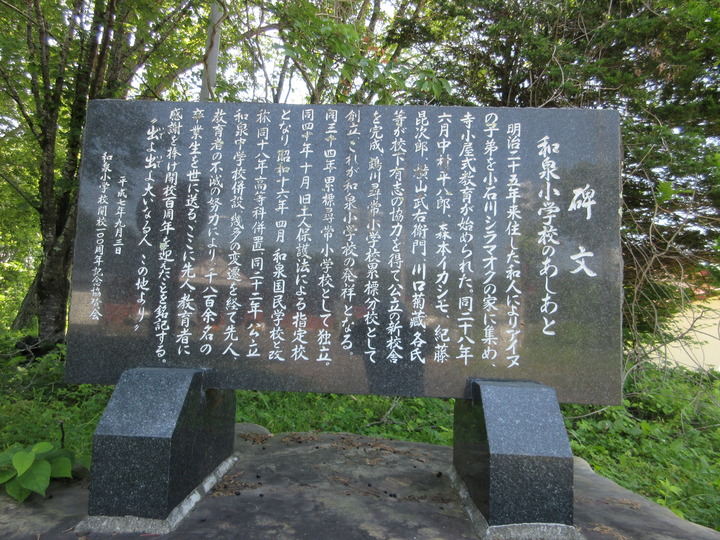 碑文
和泉小学校のあしあと
明治二十五年来住した和人によりアイヌ
の子弟を小石川シラマオクの家に集め、
寺小屋式教育が始められた。同二十八年
六月中村平八郎、森本イカシモ、紀藤
昆次郎、横山武右衛門、川口菊蔵、各氏
等が校下有志の協力を得て公立の新校舎
を完成、鵡川尋常小学校累標分校として
創立、これが和泉小学校の発祥となる。
同三十四年累標尋常小学校として独立。
同四十年十月旧土人保護法による指定校
となり、昭和十六年四月和泉国民学校と改
称、同十八年高等科併置、同二十二年公立
和泉中学校併設、幾多の変遷を経て先人、
教育者の不滅の努力により、千八百余名の
卒業生を世に送る。ここに先人、教育者に
感謝を捧げ開校百周年を迎えたことを銘記する。
〝出よ出よ大いなる人 この地より〟
平成七年九月三日
和泉小学校開校一〇〇周年記念協賛会